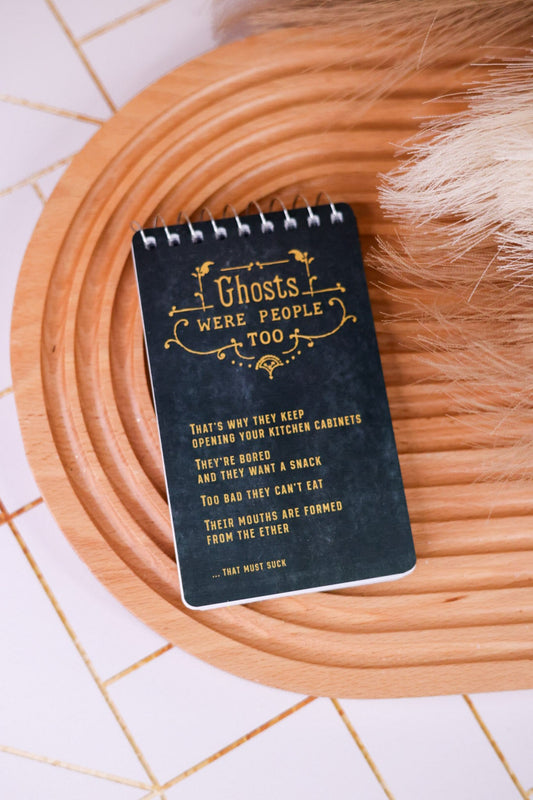 Ghosts
WERE PEOPLE
TOO
THAT'S WHY THEY KEEP
OPENING YOUR KITCHEN CABINETS
THEY'RE BORED
AND THEY WANT A SNACK
TOO BAD THEY CAN'T EAT
THEIR MOUTHS ARE FORMED
FROM THE ETHER
... THAT MUST SUCK